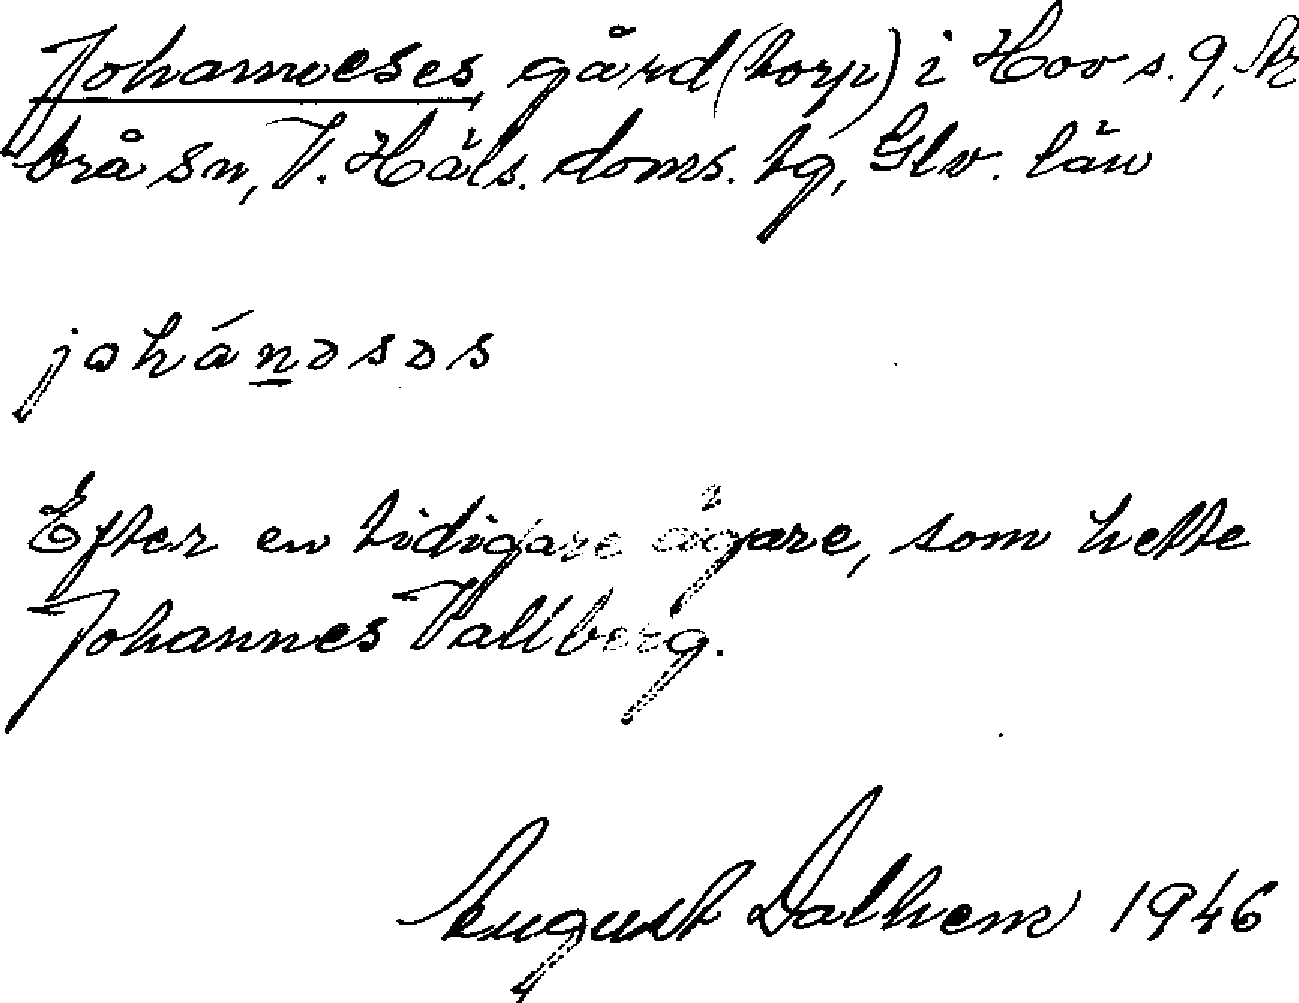 Johanneses, gård (torp) i Hov s. 9, Ar
brå sn, V. Häls. doms. tg, Glv. län
johánəsəs
Efter en tidigare ägare, som hette
Johannes Vallberg.
August Dalhem 1946